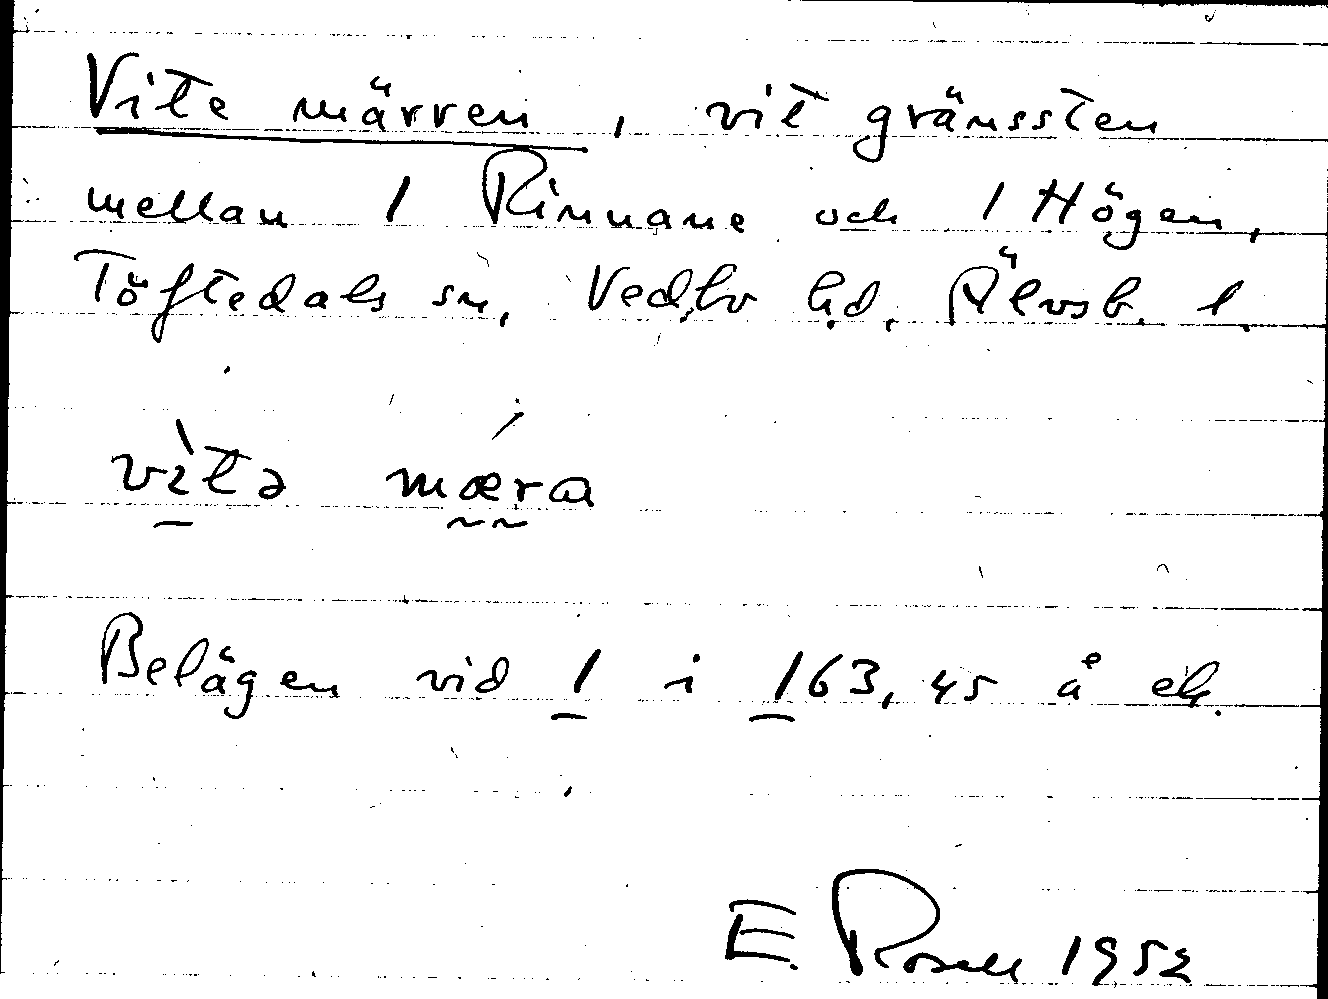 Vite märren, vit gränssten
mellan 1 Rinnane och 1 Högen,
Töftedals sn, Vedbo hd. Älvsb. l.
vìtə mǽra
Belägen vid 1 i 163,45 å ek.
E. Rosell 1952